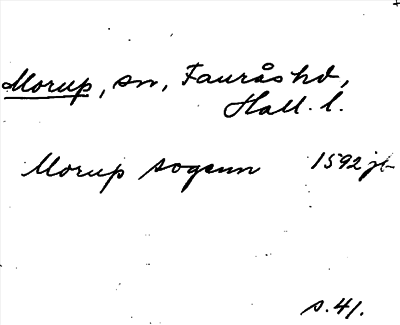 Morup, sn, Faurås hd,
Hall. l.
Morup sogenn 1592 jb
s. 41.